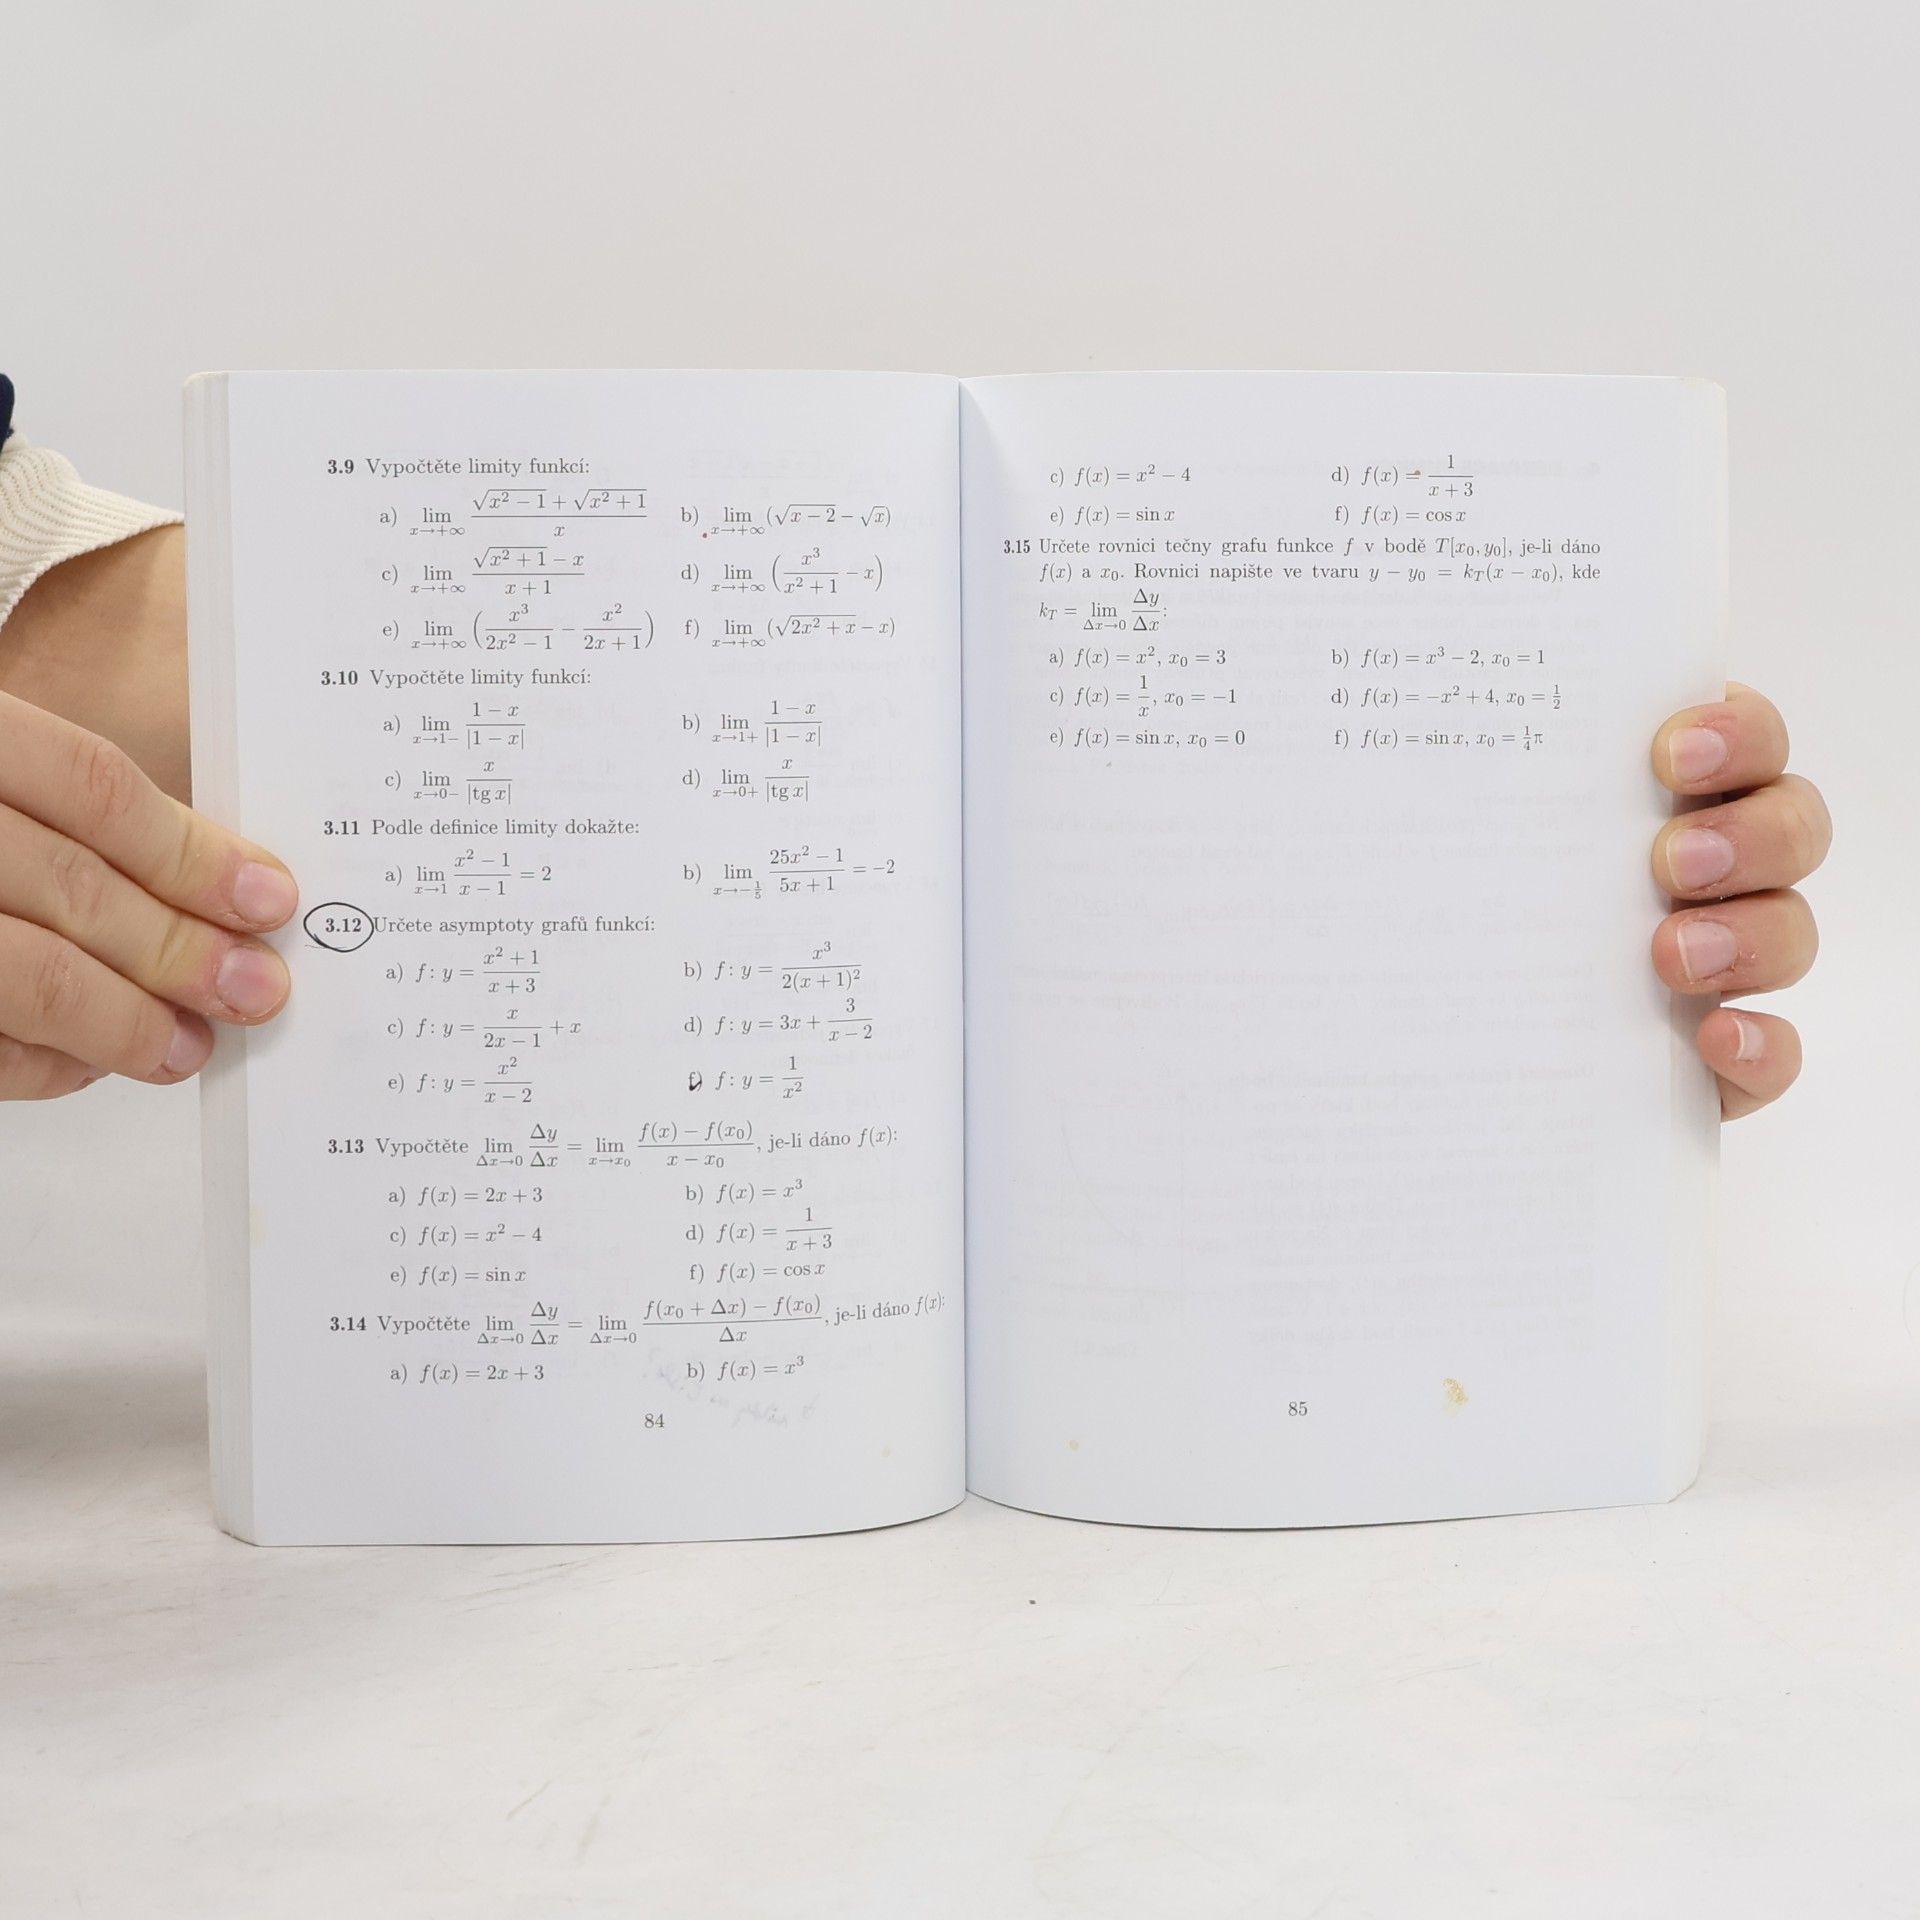 3.9 Vypočtěte limity funkcí:
a) lim x→+∞ (√(x² − 1) + √(x² + 1))/x b) lim x→+∞ (√(x − 2) − √x)
c) lim x→+∞ (√(x² + 1) − x)/(x + 1) d) lim x→+∞ (x³/(x² + 1) − x)
e) lim x→+∞ (x³/(2x² − 1) − x²/(2x + 1)) f) lim x→+∞ (√(2x² + x) − x)
3.10 Vypočtěte limity funkcí:
a) lim x→1− (1 − x)/|1 − x| b) lim x→1+ (1 − x)/|1 − x|
c) lim x→0− x/|tg x| d) lim x→0+ x/|tg x|
3.11 Podle definice limity dokažte:
a) lim x→1 (x² − 1)/(x − 1) = 2 b) lim x→−1/5 (25x² − 1)/(5x + 1) = −2
3.12 Určete asymptoty grafů funkcí:
a) f: y = (x² + 1)/(x + 3) b) f: y = x³/(2(x + 1)²)
c) f: y = x/(2x − 1) + x d) f: y = 3x + 3/(x − 2)
e) f: y = x²/(x − 2) f) f: y = 1/x²
3.13 Vypočtěte lim Δx→0 Δy/Δx = lim x→x₀ (f(x) − f(x₀))/(x − x₀), je-li dáno f(x):
a) f(x) = 2x + 3 b) f(x) = x³
c) f(x) = x² − 4 d) f(x) = 1/(x + 3)
e) f(x) = sin x f) f(x) = cos x
3.14 Vypočtěte lim Δx→0 Δy/Δx = lim Δx→0 (f(x₀ + Δx) − f(x₀))/Δx, je-li dáno f(x):
a) f(x) = 2x + 3 b) f(x) = x³
84
c) f(x) = x² − 4 d) f(x) = 1/(x + 3)
e) f(x) = sin x f) f(x) = cos x
3.15 Určete rovnici tečny grafu funkce f v bodě T[x₀, y₀], je-li dáno
f(x) a x₀. Rovnici napište ve tvaru y − y₀ = k_T(x − x₀), kde
k_T = lim Δx→0 Δy/Δx:
a) f(x) = x², x₀ = 3 b) f(x) = x³ − 2, x₀ = 1
c) f(x) = 1/x, x₀ = −1 d) f(x) = −x² + 4, x₀ = 1/2
e) f(x) = sin x, x₀ = 0 f) f(x) = sin x, x₀ = 1/4 π
85